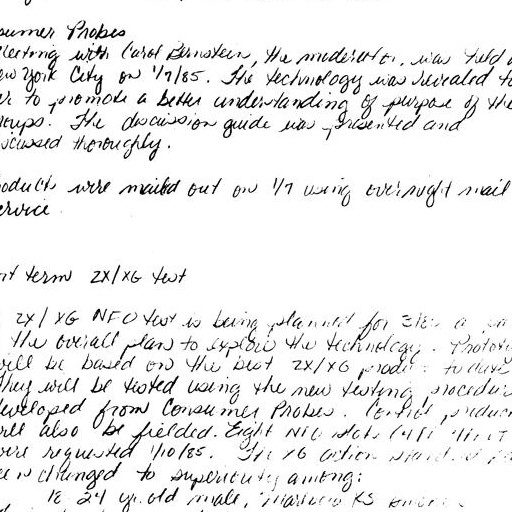 sumer Probes
Meeting with Carol Bernstein, the moderator, was held
New York City on 1/7/85. The technology was revealed to
er to promote a better understanding of purpose of the
roups. The discussion guide was presented and
scussed thoroughly.
oducts were mailed out on 1/7 using overnight mail
ervice.
ort term 2X/XG test
2X/XG NFO test is being planned for
the overall plan to explore the technology.
will be based on the best 2X/XG to date
They will be tested using the new testing procedure
developed from Consumer Probes. Control
will also be fielded. Eight NFO
were requested 1/10/85. The XG action
changed to superiority among:
18 24 yr. old male, Marlboro KS